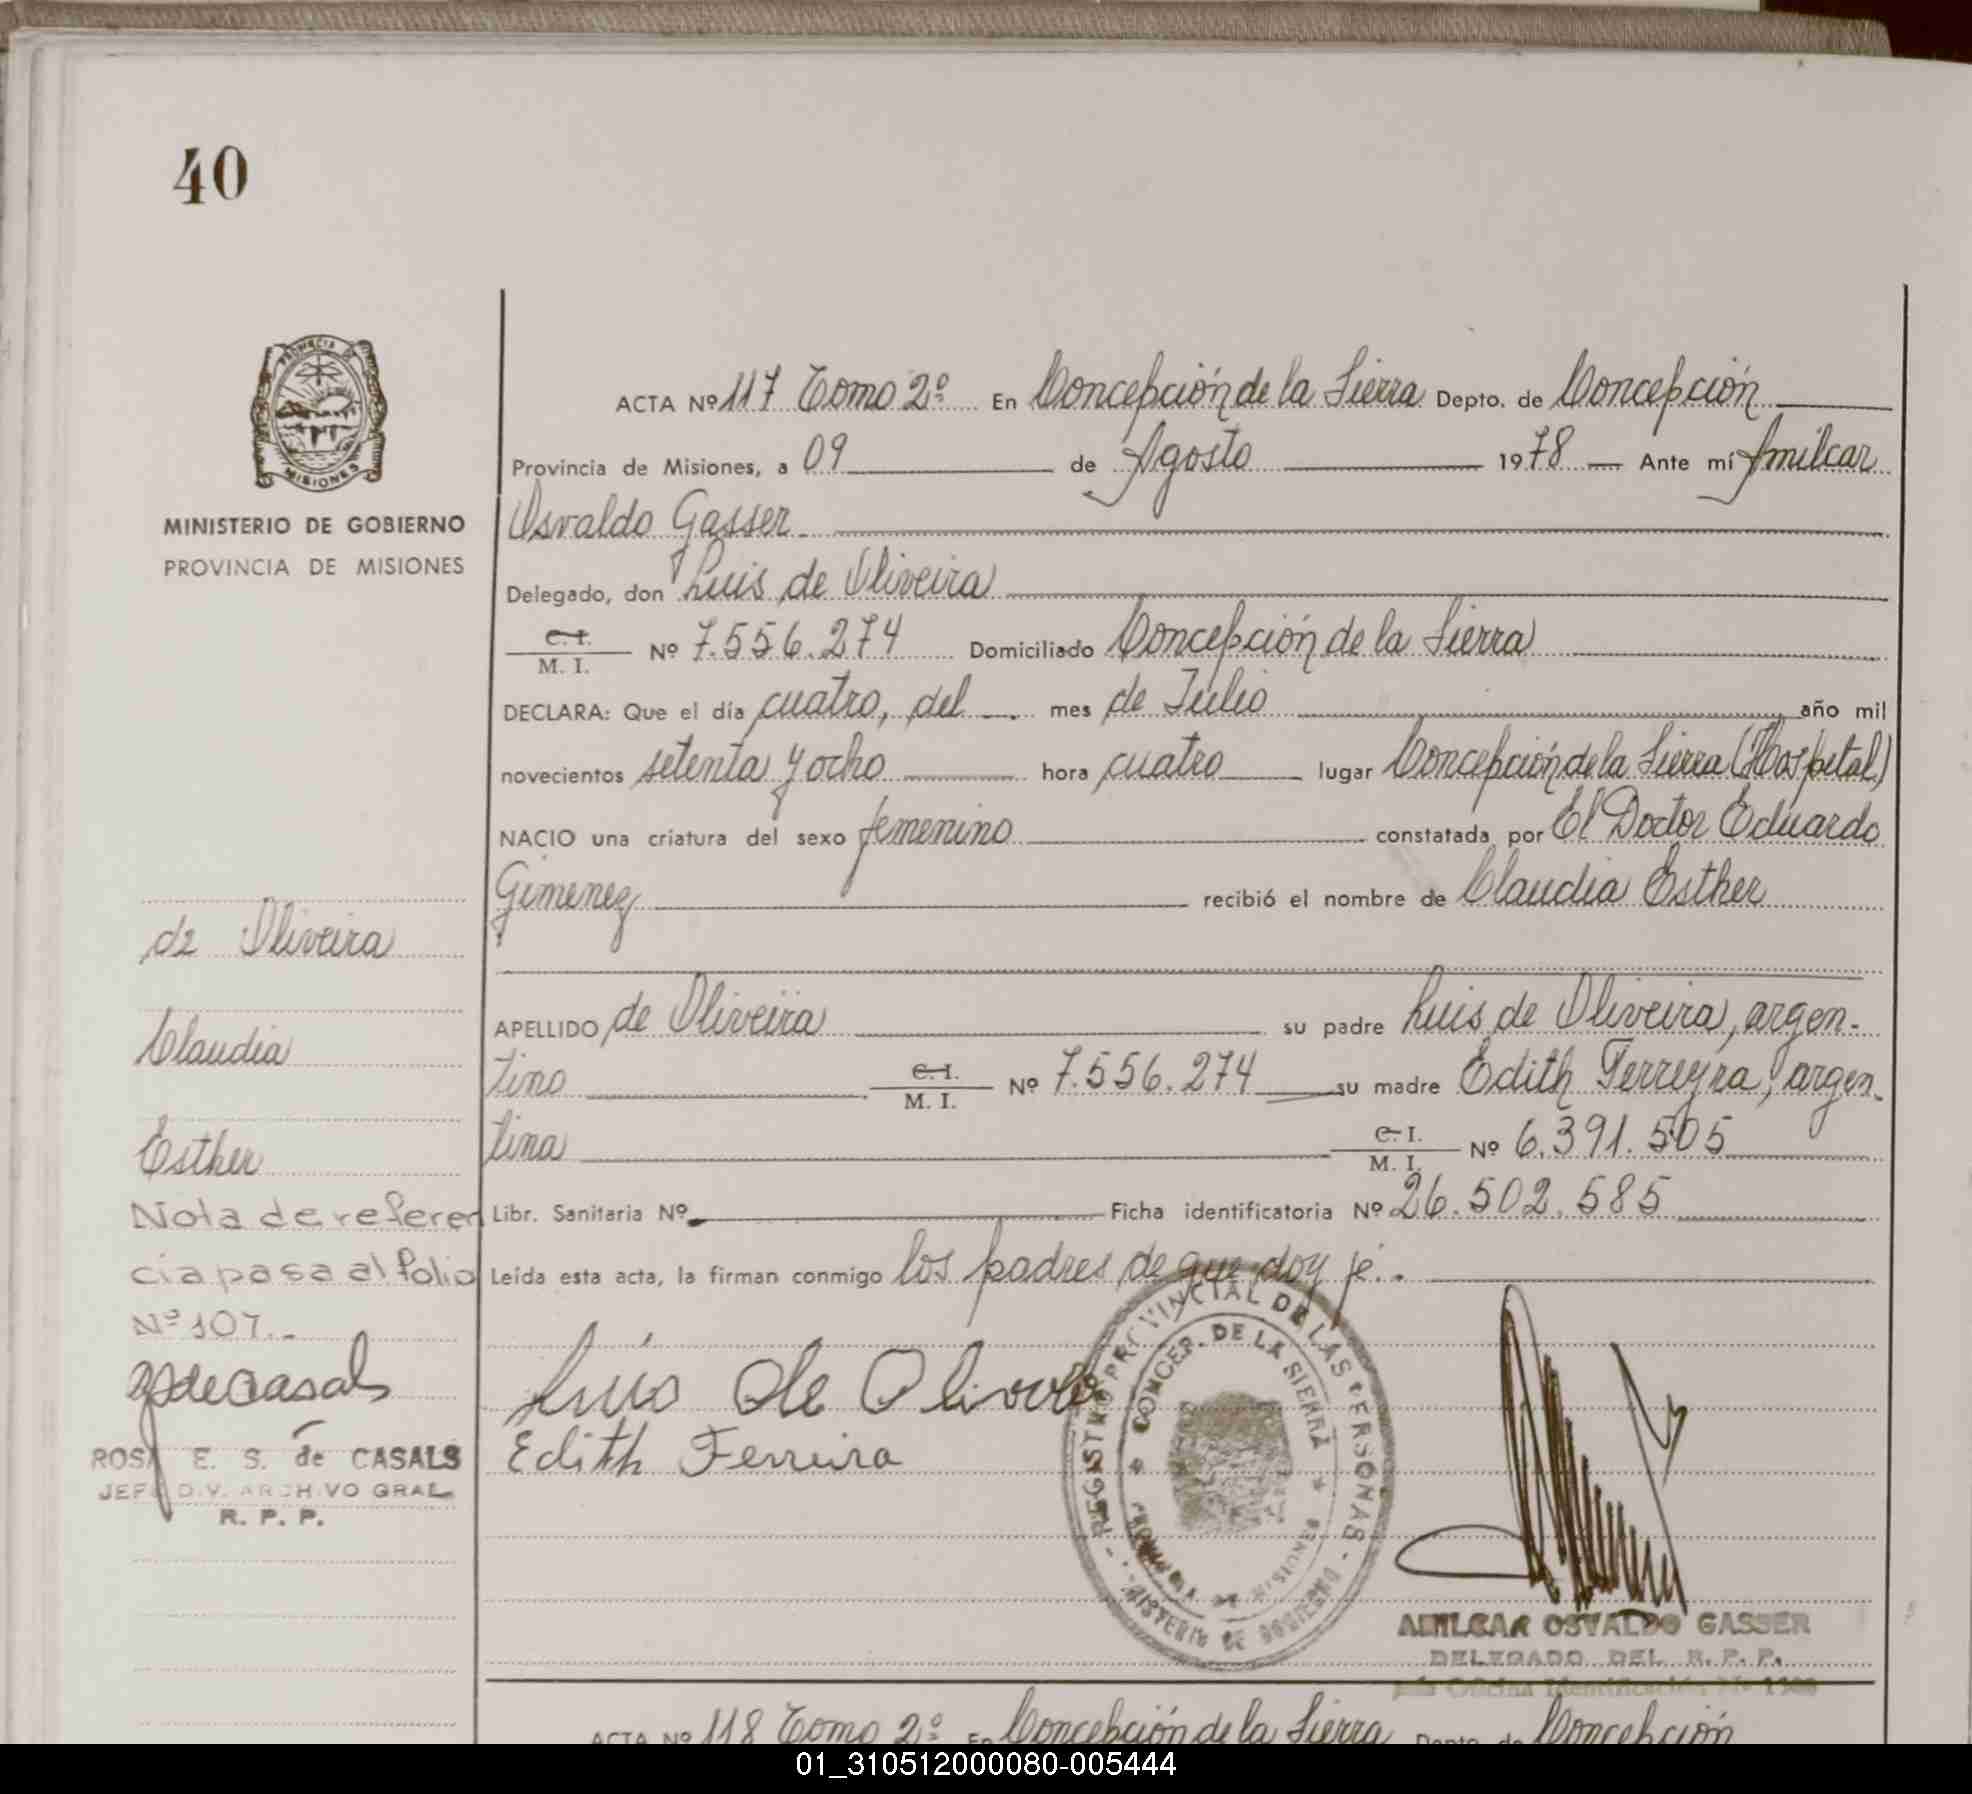 40
PROVINCIA DE
MISIONES
MINISTERIO DE GOBIERNO
PROVINCIA DE MISIONES
ACTA Nº 117 Tomo 2º En Concepción de la Sierra Depto. de Concepción
Provincia de Misiones, a 09 de Agosto 1978 Ante mí Amilcar
Osvaldo Gasser
Delegado, don Luis de Oliveira
C. I.
M. I. Nº 7.556.274 Domiciliado Concepción de la Sierra
DECLARA: Que el día cuatro, del mes de Julio año mil
novecientos setenta y ocho hora cuatro lugar Concepción de la Sierra (Hospital)
NACIO una criatura del sexo femenino constatada por El Doctor Eduardo
Gimenez recibió el nombre de Claudia Esther
de Oliveira
Claudia
Esther
APELLIDO de Oliveira su padre Luis de Oliveira, argen-
tino C. I.
M. I. Nº 7.556.274 su madre Edith Ferreyra, argen-
tina C. I.
M. I. Nº 6.391.505
Libr. Sanitaria Nº Ficha identificatoria Nº 26.502.585
Leída esta acta, la firman conmigo los padres de que doy fé.
Nota de referen
cia pasa al folio
Nº 107.-
Luis de Oliveira
Edith Ferreira
REGISTRO PROVINCIAL DE LAS PERSONAS
CONCEP. DE LA SIERRA
PROVINCIA DE MISIONES
MINISTERIO DE GOBIERNO
ROSA E. S. de CASALS
JEFE DIV. ARCHIVO GRAL.
R. P. P.
AMILCAR OSVALDO GASSER
DELEGADO DEL R. P. P.
Oficina Identificación
ACTA Nº 118 Tomo 2º En Concepción de la Sierra Depto. de Concepción
01_310512000080-005444